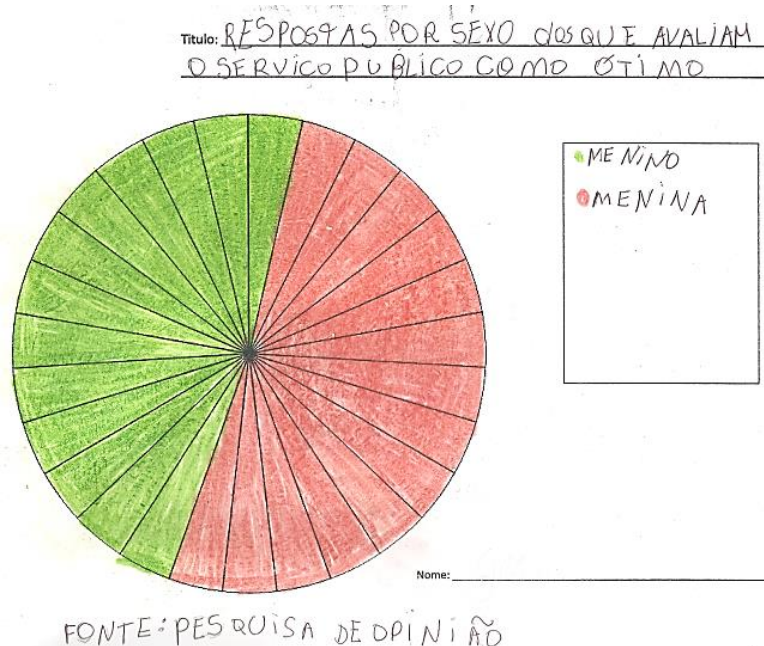 Título: RESPOSTAS POR SEXO dOS QUE AVALIAM
O SERVIÇO PUBLICO COMO ÓTIMO
MENINO
MENINA
Nome:
FONTE: PESQUISA DE OPINIÃO